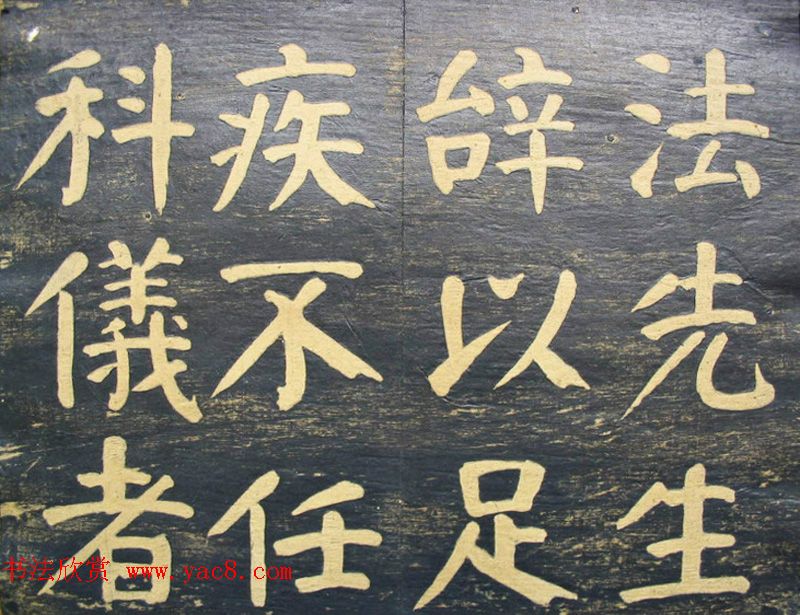 法先生
辝以足
疾不任
科儀者
书法欣赏 www.yac8.com